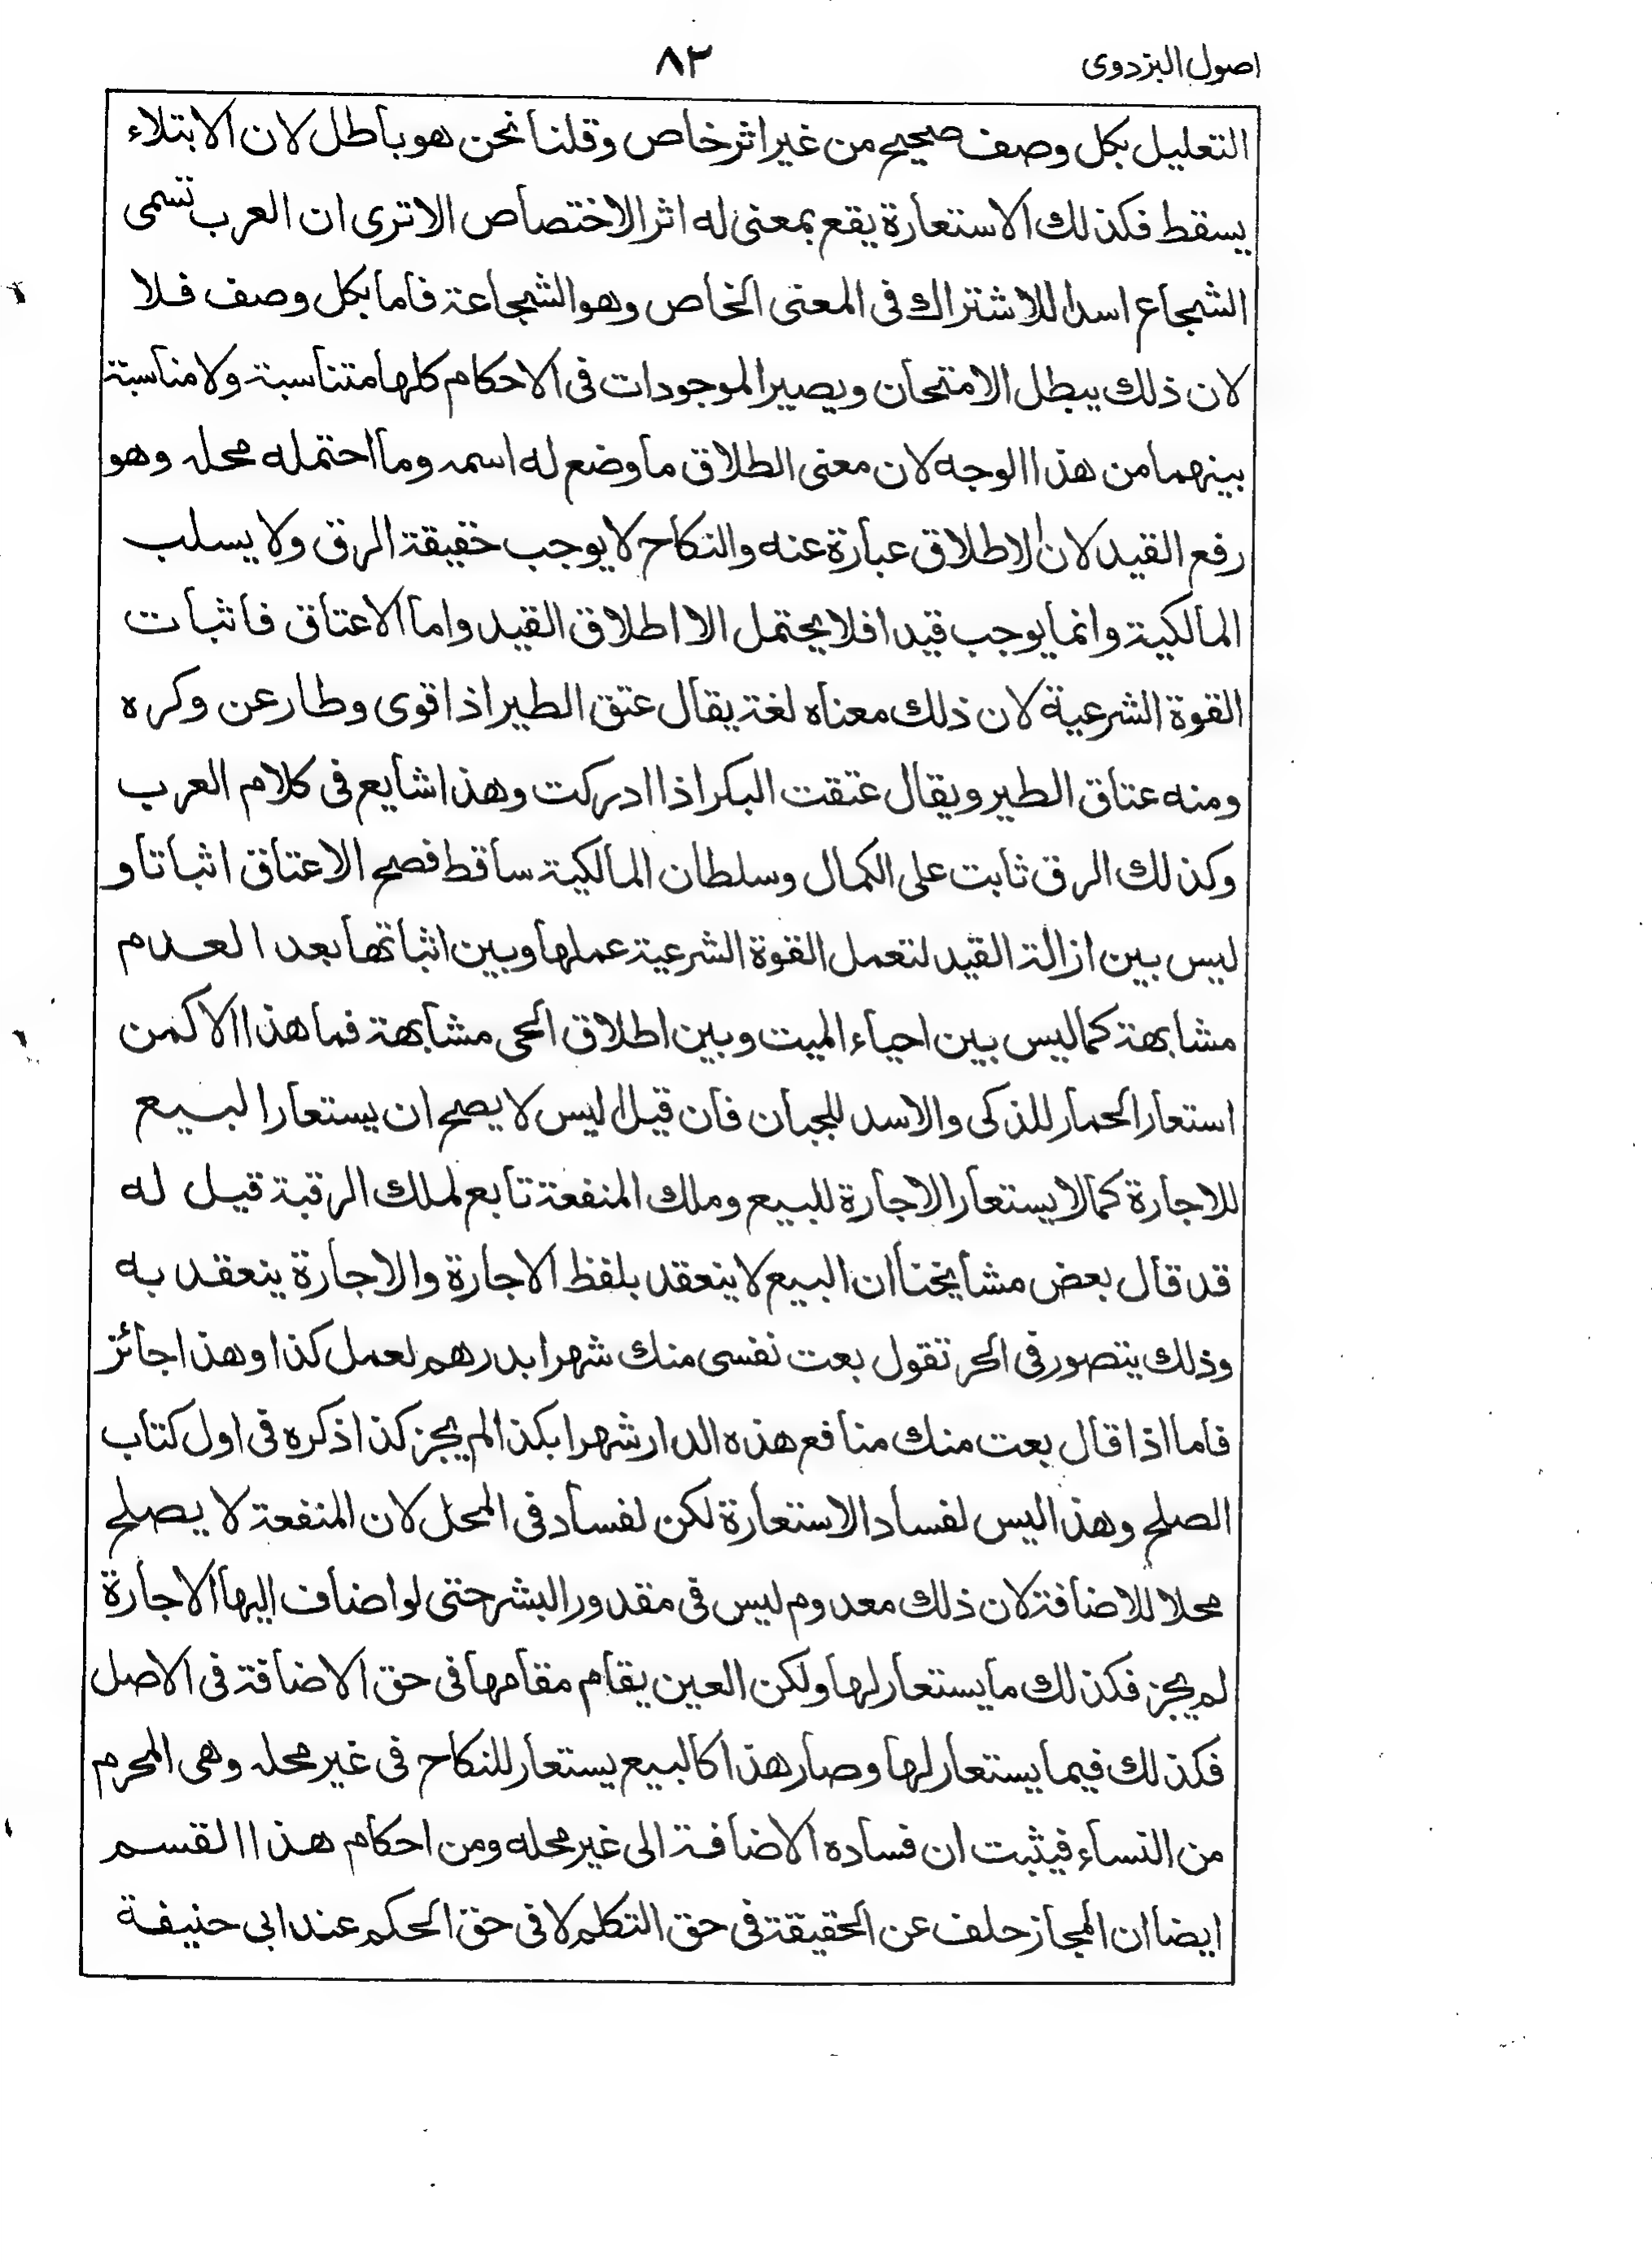 اصول البزدوى
٨٣
التعليل بكل وصف صحيح من غير اثر خاص وقلنا نحن هو باطل لان الابتلاء
يسقط فكذلك الاستعارة يقع بمعنى له اثر الاختصاص الاترى ان العرب تسمى
الشجاع اسدا للاشتراك فى المعنى الخاص وهو الشجاعة فاما بكل وصف فلا
لان ذلك يبطل الامتحان ويصير الموجودات فى الاحكام كلها متناسبة ولا مناسبة
بينهما من هذا الوجه لان معنى الطلاق ما وضع له اسمه وما احتمله محله وهو
رفع القيد لان الاطلاق عبارة عنه والنكاح لا يوجب حقيقة الرق ولا يسلب
المالكية وانما يوجب قيدا فلا يحتمل الا اطلاق القيد واما الاعتاق فاثبات
القوة الشرعية لان ذلك معناه لغة يقال عتق الطير اذا قوى وطار عن وكره
ومنه عتاق الطير ويقال عتقت البكر اذا ادركت وهذا شايع فى كلام العرب
وكذلك الرق ثابت على الكمال وسلطان المالكية ساقط فصح الاعتاق اثباتا و
ليس بين ازالة القيد لتعمل القوة الشرعية عملها وبين اثباتها بعد العدم
مشابهة كما ليس بين احياء الميت وبين اطلاق الحى مشابهة فما هذا الا كمن
استعار الحمار للذكى والاسد للجبان فان قيل اليس لا يصح ان يستعار البيع
للاجارة كما لا يستعار الاجارة للبيع وملك المنفعة تابع لملك الرقبة قيل له
قد قال بعض مشايخنا ان البيع لا ينعقد بلفظ الاجارة والاجارة ينعقد به
وذلك يتصور فى الحر تقول بعت نفسى منك شهرا بدرهم لعمل كذا وهذا جائز
فاما اذا قال بعت منك منافع هذه الدار شهرا بكذا لم يجز كذا ذكره فى اول كتاب
الصلح وهذا ليس لفساد الاستعارة لكن لفساد فى المحل لان المنفعة لا يصلح
محلا للاضافة لان ذلك معدوم ليس فى مقدور البشر حتى لو اضاف اليها الاجارة
لم يجز فكذلك ما يستعار لها ولكن العين يقام مقامها فى حق الاضافة فى الاصل
فكذلك فيما يستعار لها وصار هذا كالبيع يستعار للنكاح فى غير محله وهى المحرم
من النساء فيثبت ان فساده الاضافة الى غير محله ومن احكام هذا القسم
ايضا ان المجاز خلف عن الحقيقة فى حق التكلم لا فى حق الحكم عند ابى حنيفة